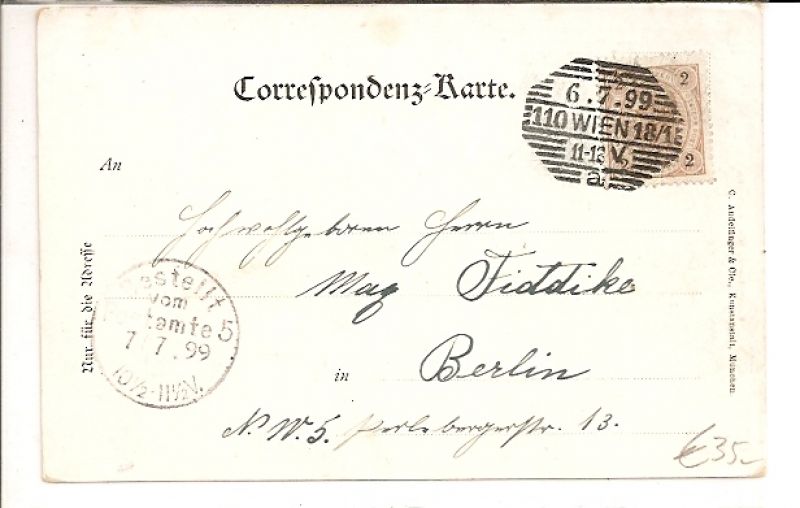 Correspondenz-Karte.
2
6.7.99
110 WIEN 18/1
11-12 V.
a
2
An
Hochwohlgeboren Herrn
Max Fiddike
Bestellt
vom
Postamte 5
7.7.99
10½-11½V.
in
Berlin
N.W.5. Perlebergerstr. 13.
Nur für die Adresse
C. Andelfinger & Cie., Kunstanstalt, München
€35-